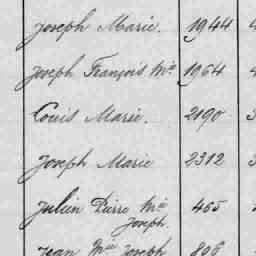 Joseph Marie. 1944
Joseph François Mie 1964
Louis Marie. 2190
Joseph Marie 2312
Julien Pierre Mie 455
Joseph.
Jean Mie Joseph 806